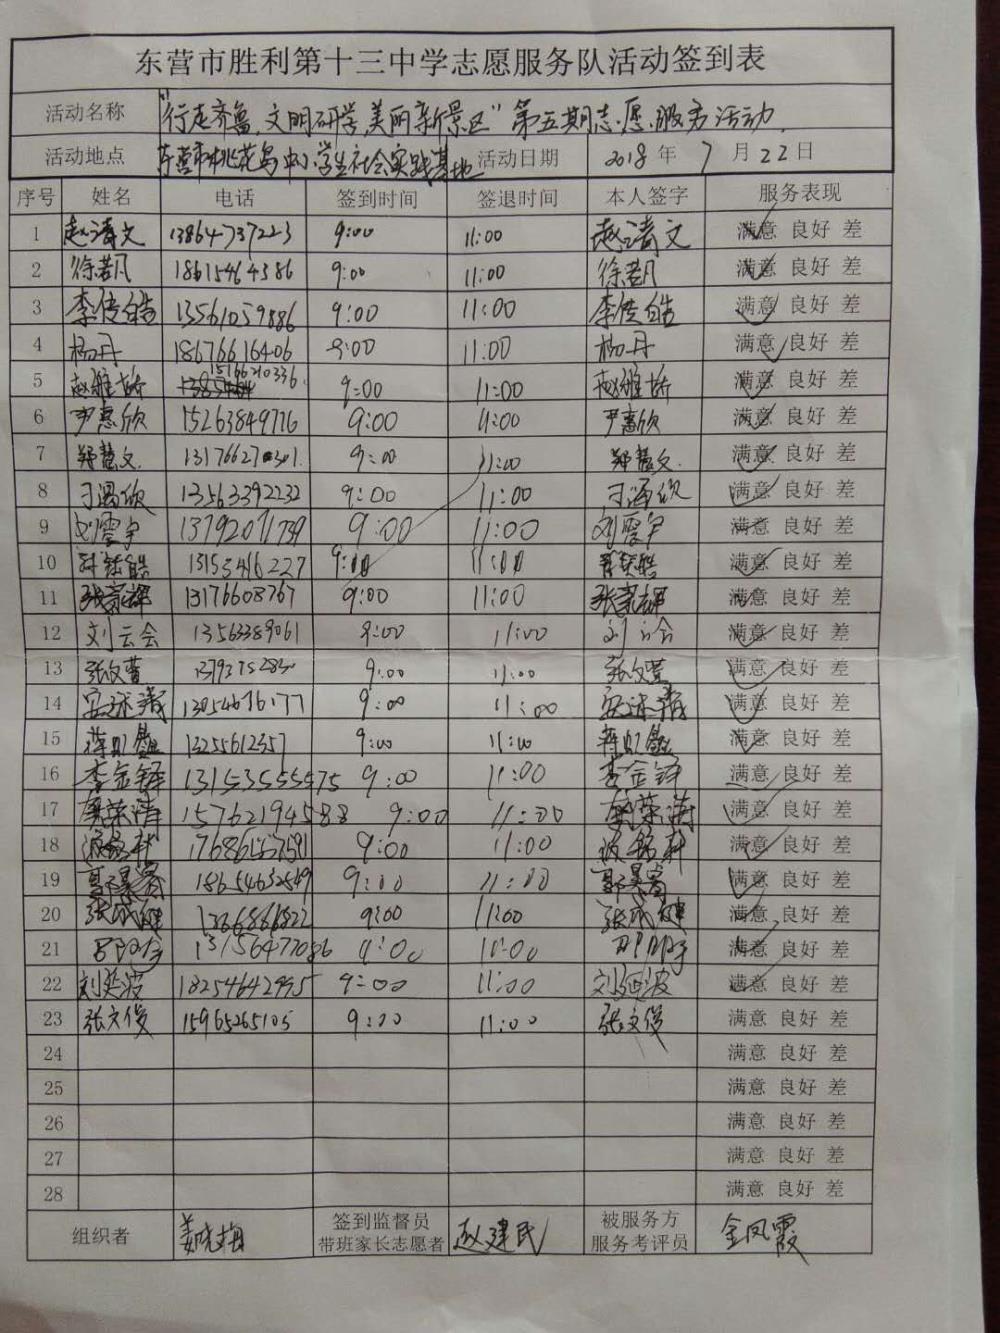 东营市胜利第十三中学志愿服务队活动签到表
活动名称 "行走齐鲁,文明研学,美丽新景区"第五期志愿服务活动.
活动地点 东营市桃花岛中小学生社会实践基地 活动日期 2018年 7 月 22 日
序号 姓名 电话 签到时间 签退时间 本人签字 服务表现
1 赵清文 13864737223 9:00 11:00 赵清文 满意 良好 差
2 9:00 11:00 满意 良好 差
3 李俊皓 13561059886 9:00 11:00 李俊皓 满意 良好 差
4 杨丹 18676616406 9:00 11:00 杨丹 满意 良好 差
5 15166210336 9:00 11:00 满意 良好 差
6 尹惠欣 15263849776 9:00 11:00 尹惠欣 满意 良好 差
7 郑慧文 9:00 11:00 郑慧文 满意 良好 差
8 13563392232 9:00 11:00 满意 良好 差
9 13792071739 9:00 11:00 满意 良好 差
10 13153416227 9:00 11:00 满意 良好 差
11 张家辉 13176608767 9:00 11:00 张家辉 满意 良好 差
12 刘云会 13563389061 9:00 11:00 刘云会 满意 良好 差
13 9:00 11:00 满意 良好 差
14 13054676177 9:00 11:00 满意 良好 差
15 13255612357 9:00 11:00 满意 良好 差
16 李金铎 13153555475 9:00 11:00 李金铎 满意 良好 差
17 15762194588 9:00 11:00 满意 良好 差
18 9:00 11:00 满意 良好 差
19 18654632549 9:00 11:00 满意 良好 差
20 张成健 9:00 11:00 张成健 满意 良好 差
21 13156477086 9:00 11:00 满意 良好 差
22 刘延波 18254642995 9:00 11:00 刘延波 满意 良好 差
23 张文俊 15965265105 9:00 11:00 张文俊 满意 良好 差
24 满意 良好 差
25 满意 良好 差
26 满意 良好 差
27 满意 良好 差
28 满意 良好 差
组织者 姜晓梅 签到监督员 带班家长志愿者 赵建民 被服务方 服务考评员 金凤霞